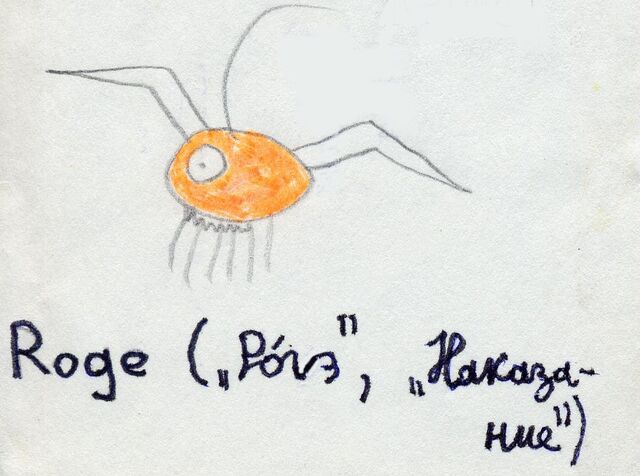 Roge („Рóгэ", „Наказа-
ние")